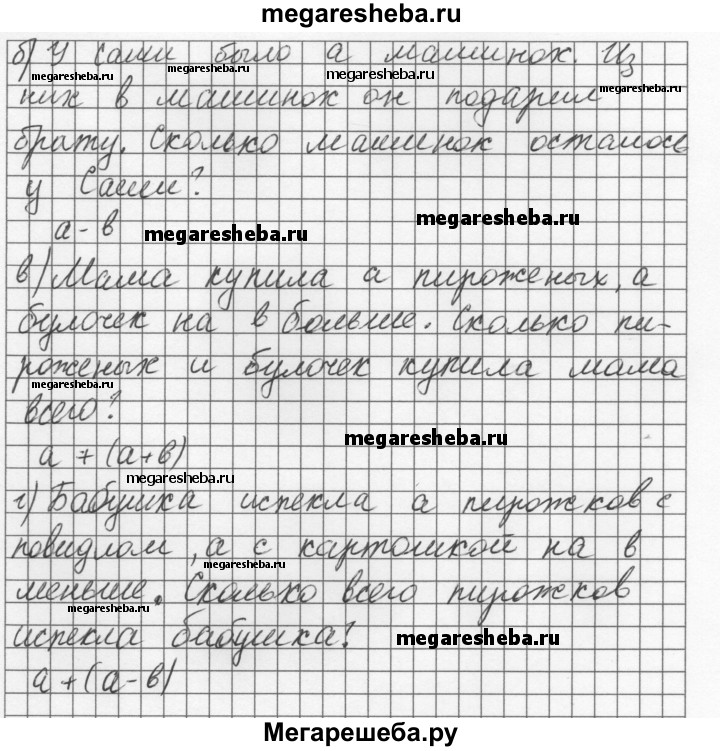 megaresheba.ru
б) У Саши было а машинок. Из
megaresheba.ru megaresheba.ru megaresheba.ru megaresheba.ru
них в машинок он подарил
брату. Сколько машинок осталось
у Саши?
а - в megaresheba.ru megaresheba.ru
в) Мама купила а пироженых, а
булочек на в больше. Сколько пи-
роженых и булочек купила мама
megaresheba.ru
всего?
megaresheba.ru
а + (а+в)
megaresheba.ru
г) Бабушка испекла а пирожков с
повидлом, а с картошкой на в
megaresheba.ru
меньше. Сколько всего пирожков
megaresheba.ru
испекла бабушка? megaresheba.ru
а + (а - в)
Мегарешеба.ру